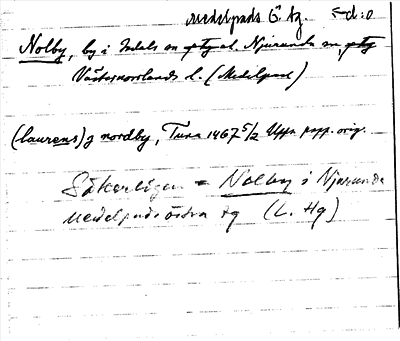 Medelpads Ö tg. <d:o
Nolby, by i Indals sn o. Njurunda sn,
Västernorrlands l. (Medelpad)
(laurens) j nordby, Tuna 1467 5/2 Upps papp. orig.
Säkerligen = Nolby i Njurunda
Medelpads östra tg (L. Hg)